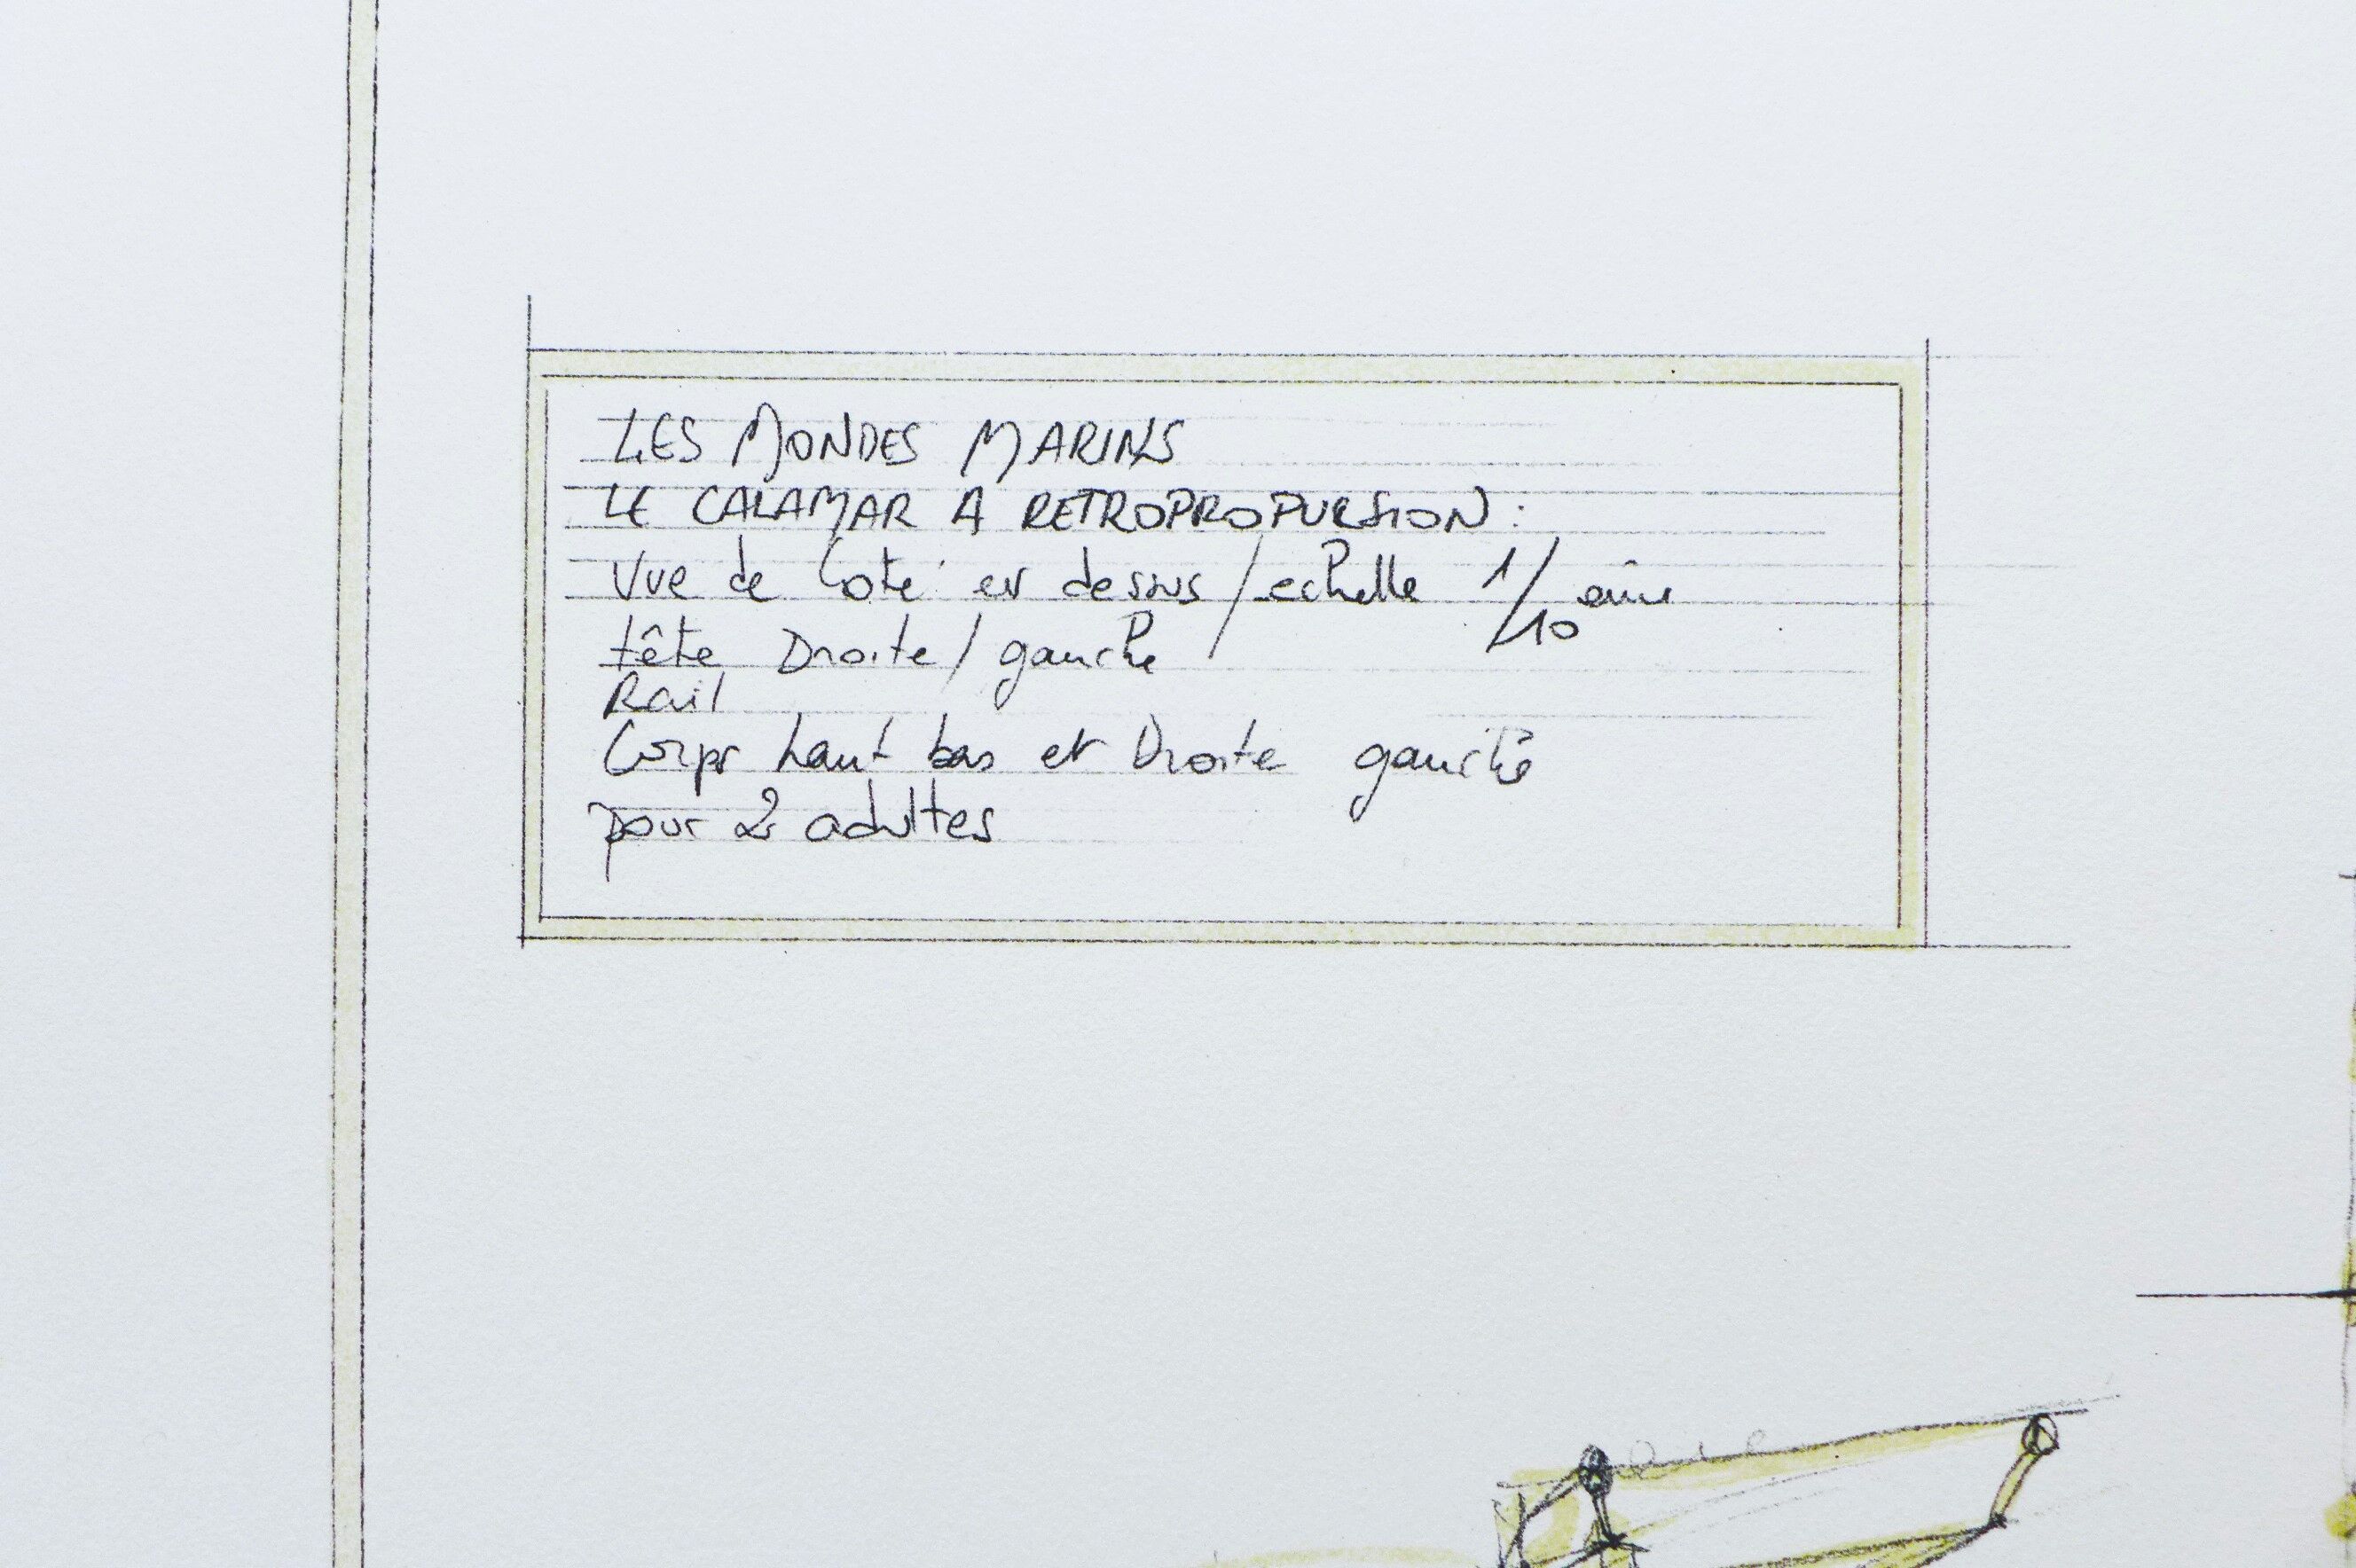 LES MONDES MARINS
LE CALAMAR A RETROPROPULSION :
Vue de coté et dessus / echelle 1/10 eme
tête Droite / gauche
Rail
Corps haut bas et Droite gauche
pour 2 adultes